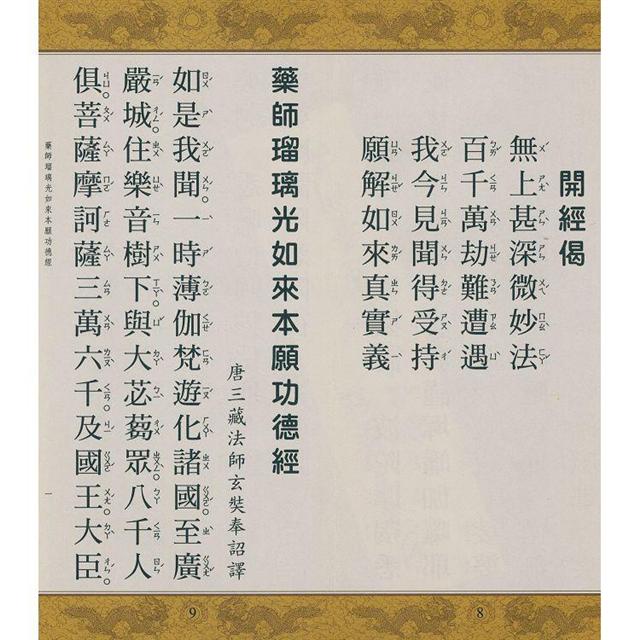 開經偈
無上甚深微妙法
百千萬劫難遭遇
我今見聞得受持
願解如來真實義
8
藥師瑠璃光如來本願功德經
唐三藏法師玄奘奉詔譯
如是我聞一時薄伽梵遊化諸國至廣
嚴城住樂音樹下與大苾蒭眾八千人
俱菩薩摩訶薩三萬六千及國王大臣
藥師瑠璃光如來本願功德經
一
9